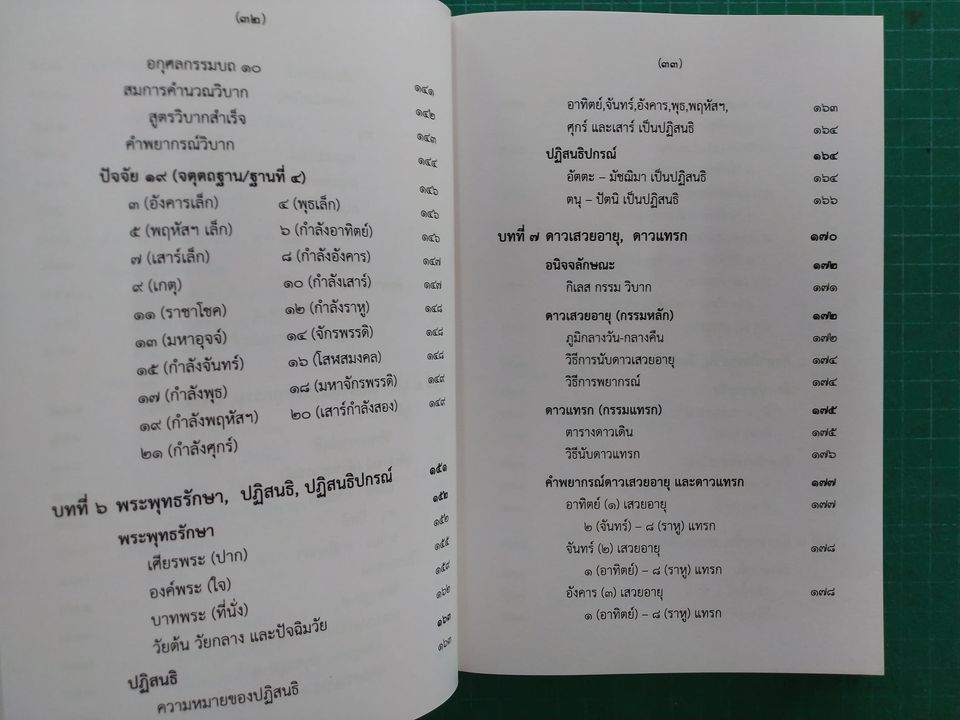 (๓๒)
อกุศลกรรมบถ ๑๐ ๑๔๑
สมการคำนวณวิบาก ๑๔๒
สูตรวิบากสำเร็จ ๑๔๓
คำพยากรณ์วิบาก ๑๔๔
ปัจจัย ๑๙ (จตุตถฐาน/ฐานที่ ๔) ๑๔๖
๓ (อังคารเล็ก) ๔ (พุธเล็ก) ๑๔๖
๕ (พฤหัสฯ เล็ก) ๖ (กำลังอาทิตย์) ๑๔๖
๗ (เสาร์เล็ก) ๘ (กำลังอังคาร) ๑๔๗
๙ (เกตุ) ๑๐ (กำลังเสาร์) ๑๔๗
๑๑ (ราชาโชค) ๑๒ (กำลังราหู) ๑๔๘
๑๓ (มหาอุจจ์) ๑๔ (จักรพรรดิ) ๑๔๘
๑๕ (กำลังจันทร์) ๑๖ (โสฬสมงคล) ๑๔๘
๑๗ (กำลังพุธ) ๑๘ (มหาจักรพรรดิ) ๑๔๙
๑๙ (กำลังพฤหัสฯ) ๒๐ (เสาร์กำลังสอง) ๑๔๙
๒๑ (กำลังศุกร์)
บทที่ ๖ พระพุทธรักษา, ปฏิสนธิ, ปฏิสนธิปกรณ์ ๑๕๑
พระพุทธรักษา ๑๕๒
เศียรพระ (ปาก) ๑๕๒
องค์พระ (ใจ) ๑๕๕
บาทพระ (ที่นั่ง) ๑๕๙
วัยต้น วัยกลาง และปัจฉิมวัย ๑๖๒
ปฏิสนธิ ๑๖๓
ความหมายของปฏิสนธิ ๑๖๓
(๓๓)
อาทิตย์,จันทร์,อังคาร,พุธ,พฤหัสฯ, ๑๖๓
ศุกร์ และเสาร์ เป็นปฏิสนธิ ๑๖๔
ปฏิสนธิปกรณ์ ๑๖๔
อัตตะ – มัชฌิมา เป็นปฏิสนธิ ๑๖๔
ตนุ – ปัตนิ เป็นปฏิสนธิ ๑๖๖
บทที่ ๗ ดาวเสวยอายุ, ดาวแทรก ๑๗๐
อนิจจลักษณะ ๑๗๒
กิเลส กรรม วิบาก ๑๗๑
ดาวเสวยอายุ (กรรมหลัก) ๑๗๒
ภูมิกลางวัน-กลางคืน ๑๗๒
วิธีการนับดาวเสวยอายุ ๑๗๔
วิธีการพยากรณ์ ๑๗๔
ดาวแทรก (กรรมแทรก) ๑๗๕
ตารางดาวเดิน ๑๗๕
วิธีนับดาวแทรก ๑๗๖
คำพยากรณ์ดาวเสวยอายุ และดาวแทรก ๑๗๗
อาทิตย์ (๑) เสวยอายุ ๑๗๗
๒ (จันทร์) – ๘ (ราหู) แทรก
จันทร์ (๒) เสวยอายุ ๑๗๘
๑ (อาทิตย์) – ๘ (ราหู) แทรก
อังคาร (๓) เสวยอายุ ๑๗๘
๑ (อาทิตย์) – ๘ (ราหู) แทรก